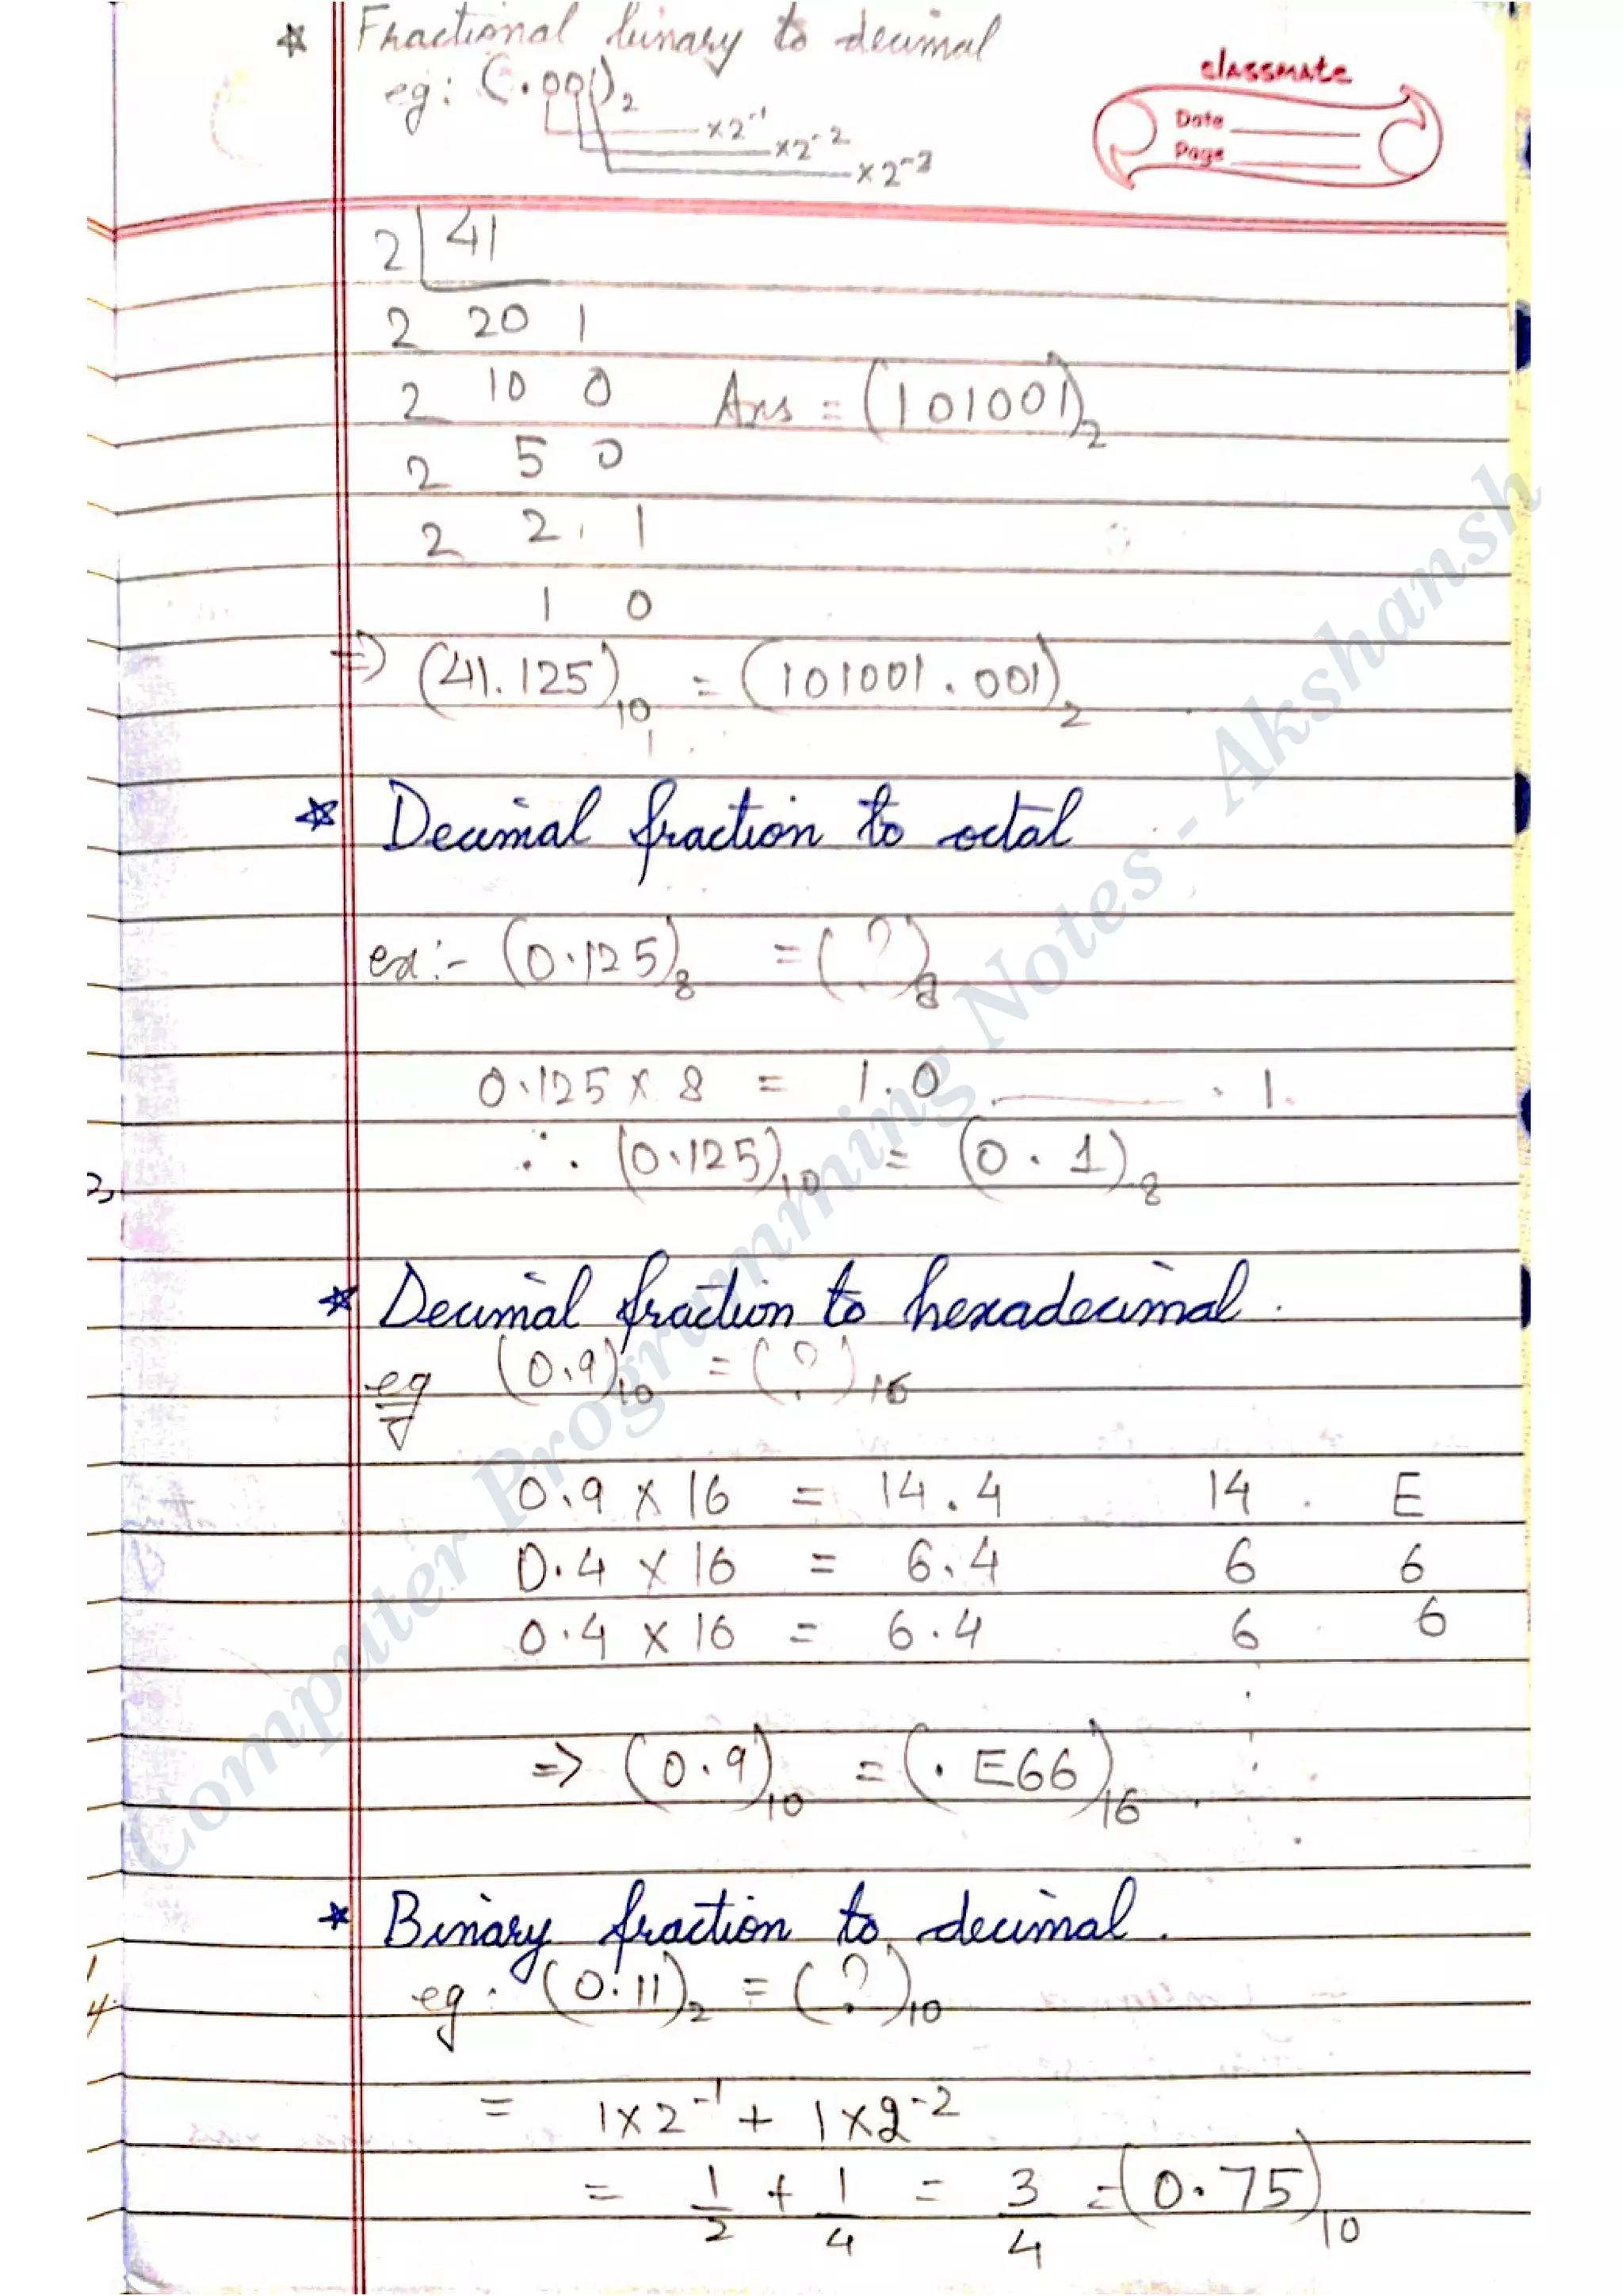 * Fractional binary to decimal
eg: (.001)₂
×2⁻¹
×2⁻²
×2⁻³
classmate
Date
Page
2 | 41
2 20 1
2 10 0 Ans = (101001)₂
2 5 0
2 2 1
1 0
=> (41.125)₁₀ = (101001.001)₂
* Decimal fraction to octal
ex:- (0.125)₈ = (?)₈
0.125 × 8 = 1.0 1
∴ (0.125)₁₀ = (0.1)₈
* Decimal fraction to hexadecimal.
eg (0.9)₁₀ = (?)₁₆
0.9 × 16 = 14.4 14 E
0.4 × 16 = 6.4 6 6
0.4 × 16 = 6.4 6 6
=> (0.9)₁₀ = (.E66)₁₆
* Binary fraction to decimal.
eg: (0.11)₂ = (?)₁₀
= 1×2⁻¹ + 1×2⁻²
= 1/2 + 1/4 = 3/4 = (0.75)₁₀
Computer Programming Notes - Akshansh